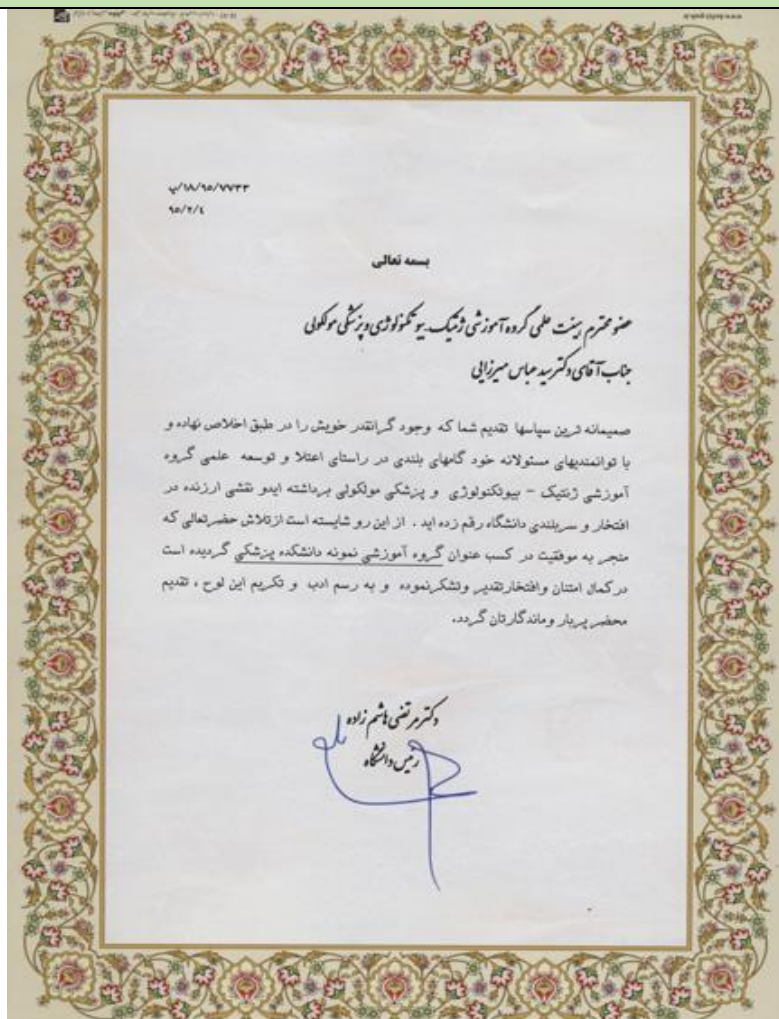 پ/۱۸/۹۵/۷۷۳۳
۹۵/۲/٤
بسمه تعالی
عضو محترم هیئت علمی گروه آموزشی ژنتیک بیوتکنولوژی و پزشکی مولکولی
جناب آقای دکتر سید عباس میرزایی
صمیمانه ترین سپاسها تقدیم شما که وجود گرانقدر خویش را در طبق اخلاص نهاده و
با توانمندیهای مسئولانه خود گامهای بلندی در راستای اعتلا و توسعه علمی گروه
آموزشی ژنتیک – بیوتکنولوژی و پزشکی مولکولی برداشته ایدو نقشی ارزنده در
افتخار و سربلندی دانشگاه رقم زده اید . از این رو شایسته است ازتلاش حضرتعالی که
منجر به موفقیت در کسب عنوان گروه آموزشی نمونه دانشکده پزشکی گردیده است
درکمال امتنان وافتخارتقدیر وتشکرنموده و به رسم ادب و تکریم این لوح ، تقدیم
محضر پربار وماندگارتان گردد.
دکتر مرتضی هاشم زاده
رئیس دانشگاه